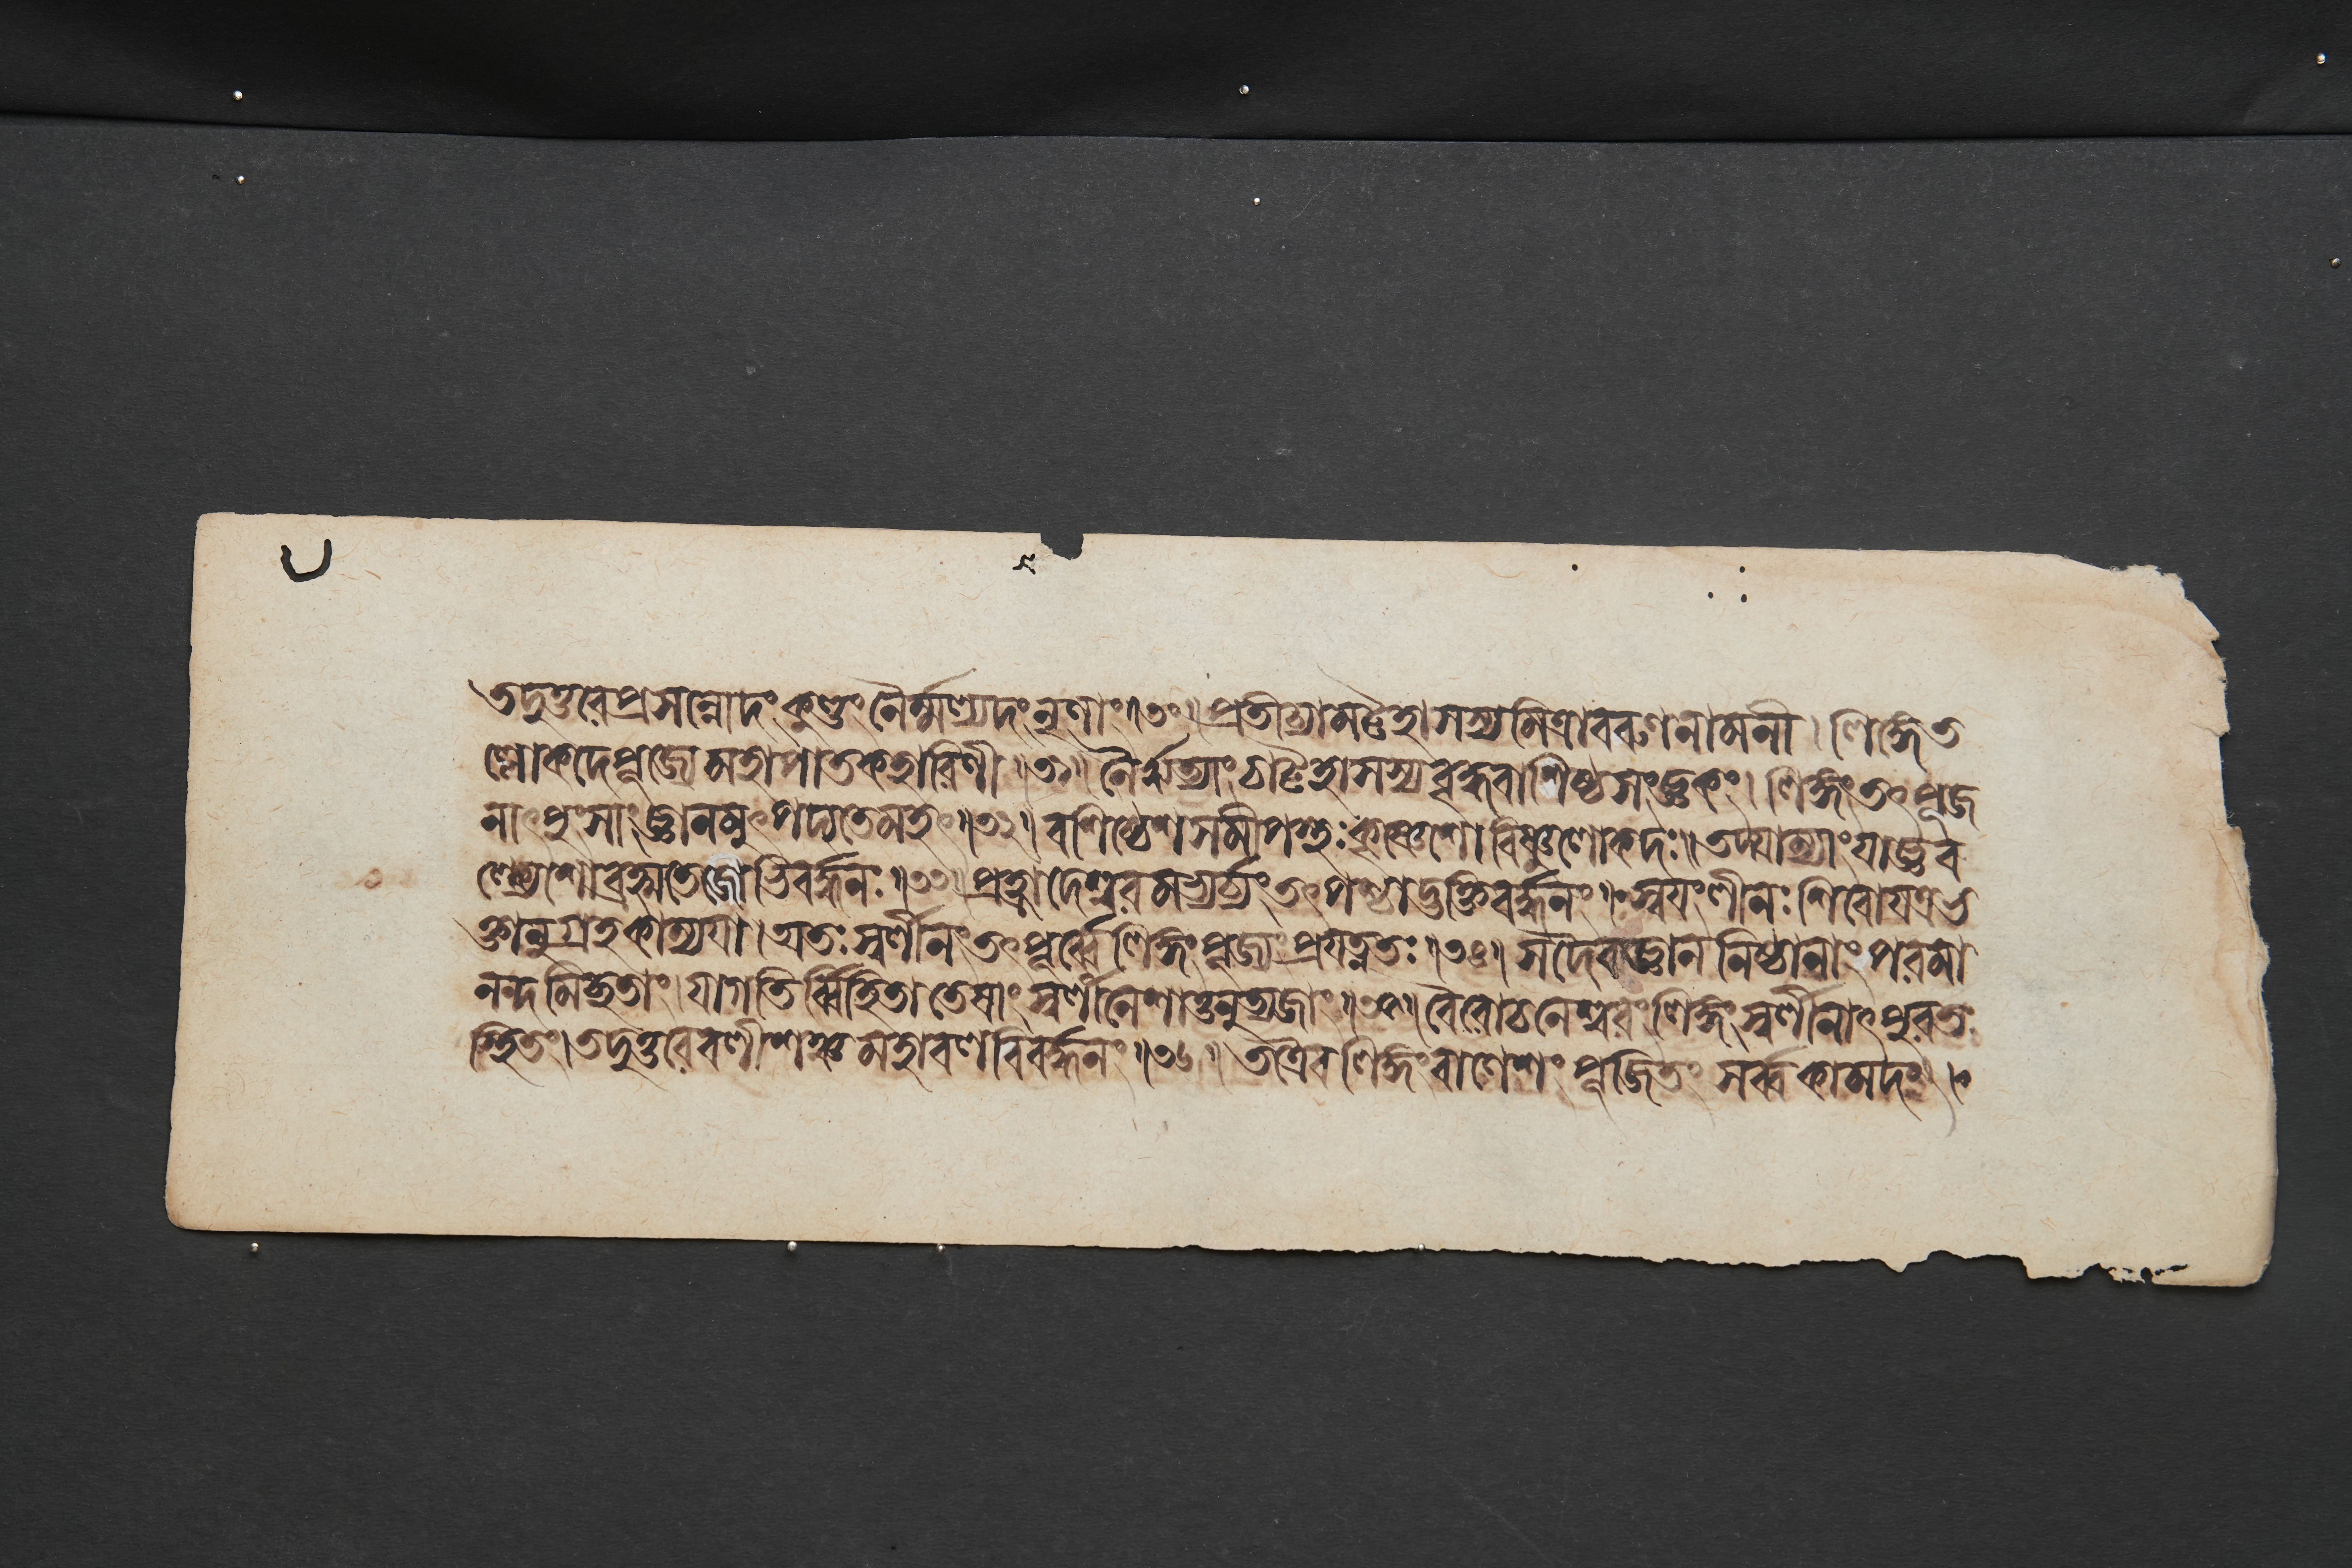 তদুত্তরে প্রসন্নোদং কুণ্ডং নৈর্ম্মল্যদং নৃণাং॥৩০॥ প্রতীচ্যামট্টহাসস্য মিত্রাবরুণনামনী। লিঙ্গে ত
ল্লোকদে পূজ্যে মহাপাতকহারিণী॥৩১॥ নৈর্ঋত্যাং চাট্টহাসস্য বৃদ্ধবাশিষ্ঠসংজ্ঞকং। লিঙ্গং তৎপূজ
নাৎ পুংসাং জ্ঞানমুৎপদ্যতে মহৎ॥৩২॥ বশিষ্ঠেশসমীপস্থঃ কৃষ্ণেশো বিষ্ণুলোকদঃ॥ তদ্যাম্যাং যাজ্ঞব
ল্ক্যেশো ব্রহ্মতেজোভিবর্দ্ধনঃ॥৩৩॥ প্রহ্লাদেশ্বরমভ্যর্চ্যং তৎপশ্চাদ্ভক্তিবর্দ্ধনং॥ স্বয়ংলীনঃ শিবো যত্র ভ
ক্তানুগ্রহকাম্যয়া। অতঃ স্বর্লীনং তৎপূর্ব্বে লিঙ্গং পূজ্যং প্রযত্নতঃ॥৩৪॥ সদৈব জ্ঞাননিষ্ঠানাং পরমা
নন্দমিচ্ছতাং। যা গতির্ব্বিহিতা তেষাং স্বর্লীনে শা তনুত্যজাং॥৩৫॥ বৈরোচনেশ্বরং লিঙ্গং স্বর্লীনাৎ পুরতঃ
স্থিতং। তদুত্তরে বলীশঞ্চ মহাবলবিবর্দ্ধনং॥৩৬॥ তত্রৈব লিঙ্গং বাণেশং পূজিতং সর্ব্বকামদং।